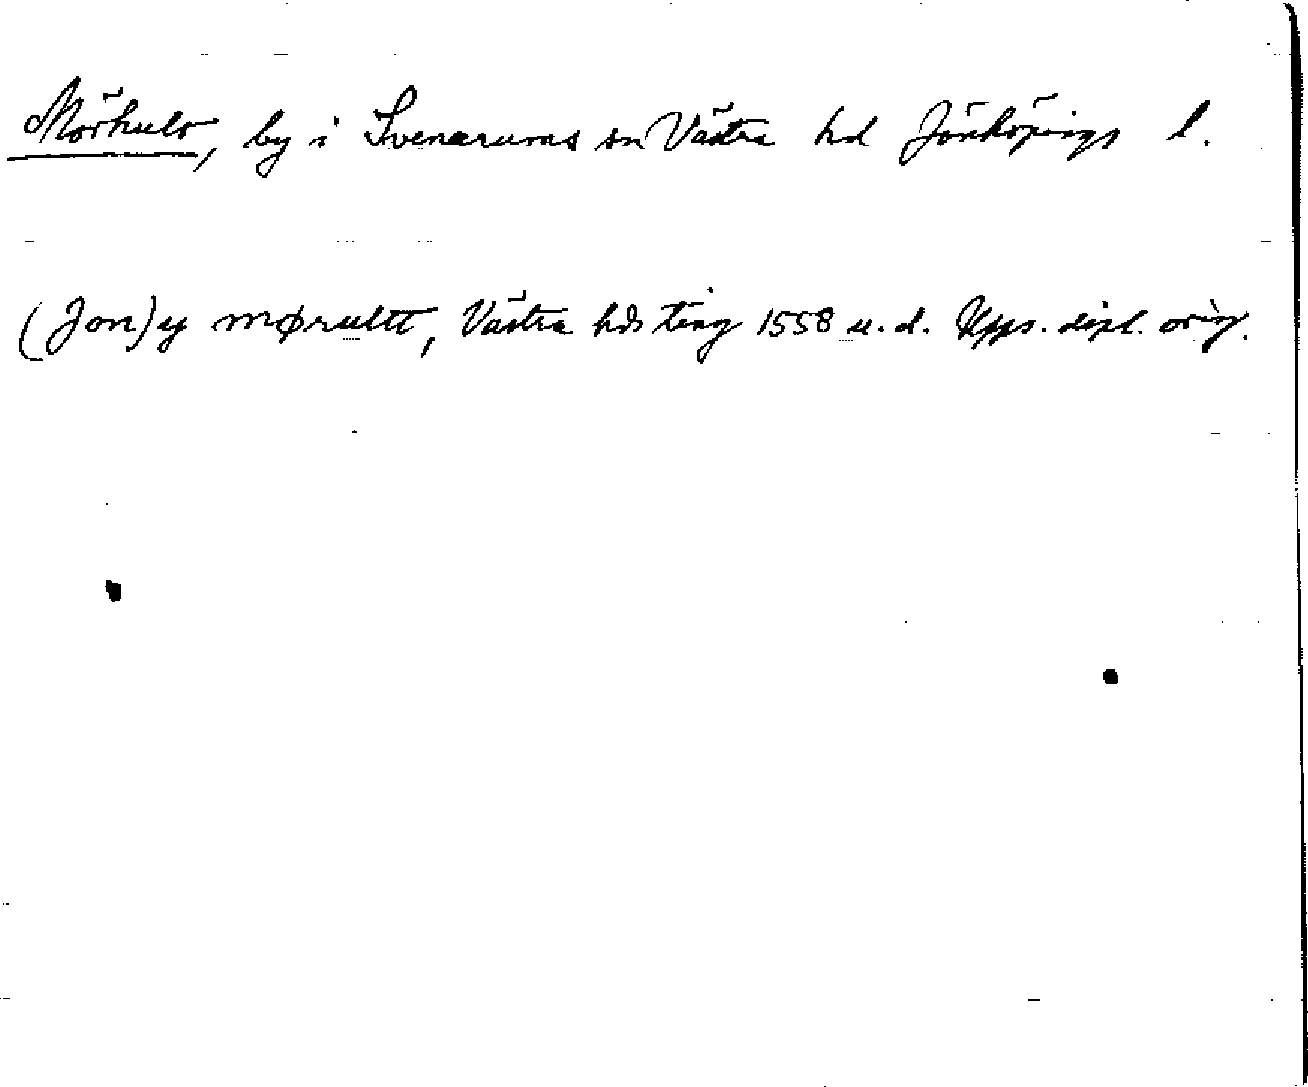 Mörhult, by i Svenarums sn Västra hd Jönköpings l.
(Jon) y mørultt, Västra hds ting 1558 u.d. Upps. dipl. orig.